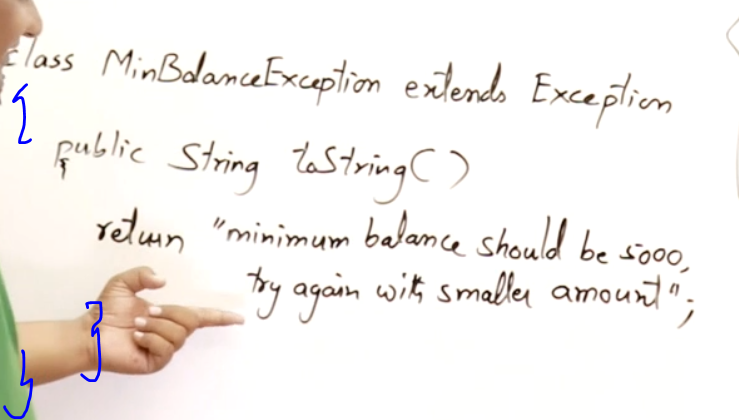 class MinBalanceException extends Exception
{
public String toString()
{
return "minimum balance should be 5000,
try again with smaller amount";
}
}